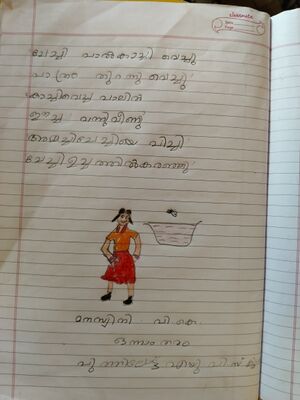 classmate
Date
Page
ചേച്ചി പാൽകാച്ചി വെച്ചു
പാത്രം തുറന്നു വെച്ചു
കാച്ചിവെച്ച പാലിൽ
ഈച്ച വന്നുവീണു
അമ്മച്ചിചേച്ചിയെ പിച്ചി
ചേച്ചി ഉച്ചത്തിൽകരഞ്ഞു
മനസ്വിനി. വി. കെ.
ഒന്നാം തരം